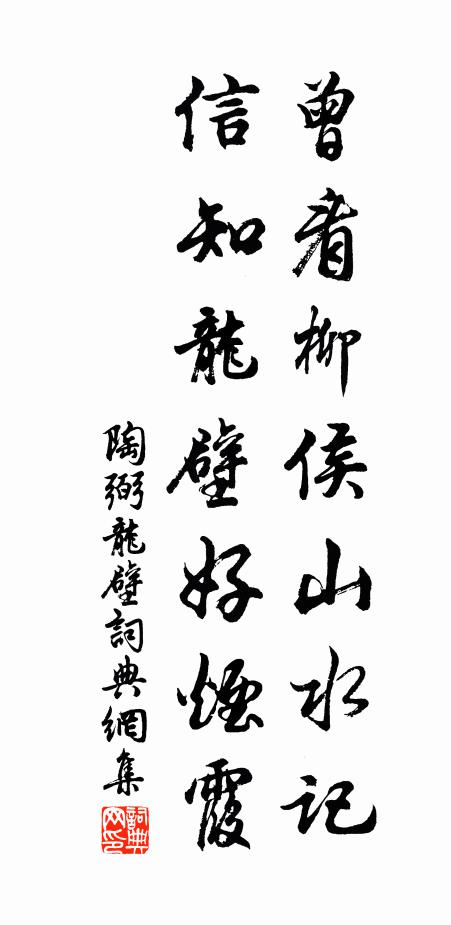 曾看柳侯山水記
信知龍壁好煙霞
陶弼龍壁詞典網集
詞典网印